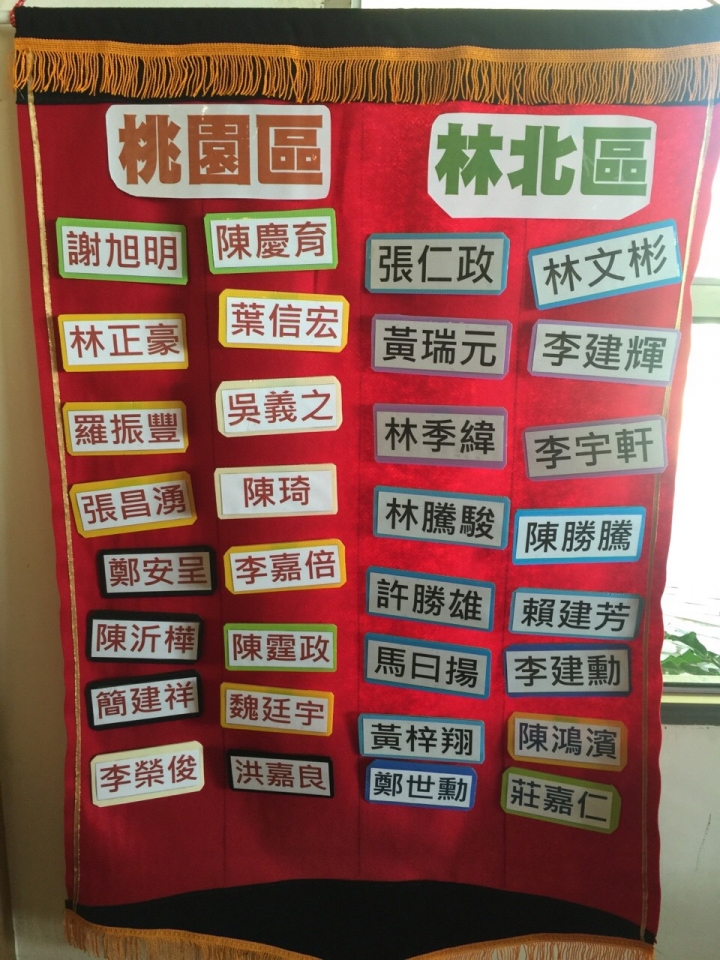 桃園區
謝旭明
陳慶育
林正豪
葉信宏
羅振豐
吳義之
張昌湧
陳琦
鄭安呈
李嘉倍
陳沂樺
陳霆政
簡建祥
魏廷宇
李榮俊
洪嘉良
林北區
張仁政
林文彬
黃瑞元
李建輝
林季緯
李宇軒
林騰駿
陳勝騰
許勝雄
賴建芳
馬曰揚
李建勳
黃梓翔
陳鴻濱
鄭世勳
莊嘉仁